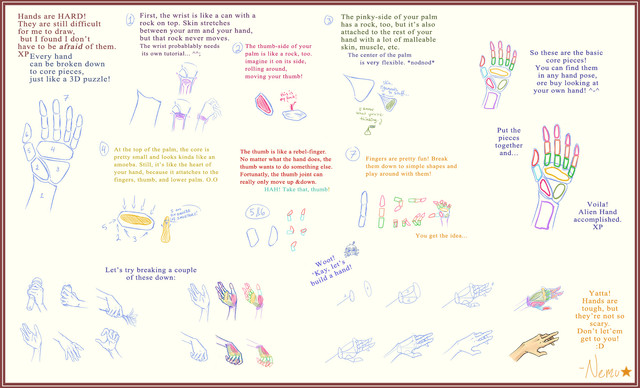 Hands are HARD!
They are still difficult
for me to draw,
but I found I don't
have to be afraid of them.
XP
Every hand
can be broken down
to core pieces,
just like a 3D puzzle!
1
First, the wrist is like a can with a
rock on top. Skin stretches
between your arm and your hand,
but that rock never moves.
The wrist probablably needs
its own tutorial... ^^;
2
The thumb-side of your
palm is like a rock, too.
imagine it on its side,
rolling around,
moving your thumb!
3
The pinky-side of your palm
has a rock, too, but it's also
attached to the rest of your
hand with a lot of malleable
skin, muscle, etc.
The center of the palm
is very flexible. *nodnod*
So these are the basic
core pieces!
You can find them
in any hand pose,
ore buy looking at
your own hand! ^-^
4
At the top of the palm, the core is
pretty small and looks kinda like an
amoeba. Still, it's like the heart of
your hand, because it attatches to the
fingers, thumb, and lower palm. O.O
The thumb is like a rebel-finger.
No matter what the hand does, the
thumb wants to do something else.
Fortunately, the thumb joint can
really only move up &down.
HAH! Take that, thumb!
5&6
7
Fingers are pretty fun! Break
them down to simple shapes and
play around with them!
You get the idea...
Put the
pieces
together
and...
Voila!
Alien Hand
accomplished.
XP
Let's try breaking a couple
of these down:
Woot!
'Kay, let's
build a hand!
Yatta!
Hands are
tough, but
they're not so
scary.
Don't let'em
get to you!
:D
-Nemu